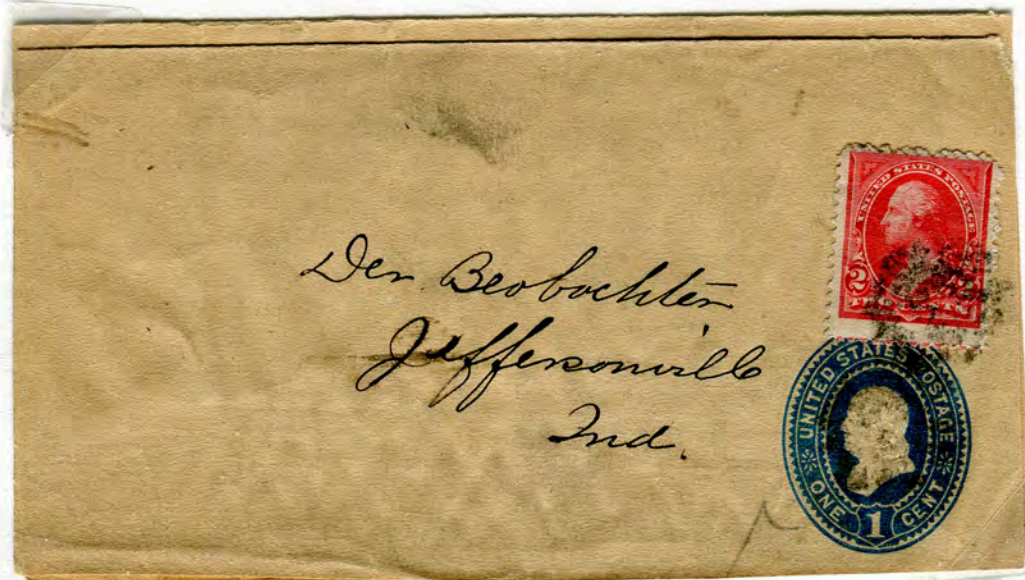 Der Beobachter
Jeffersonville
Ind.
UNITED STATES POSTAGE
2 2
TWO CENTS
UNITED STATES POSTAGE
ONE 1 CENT